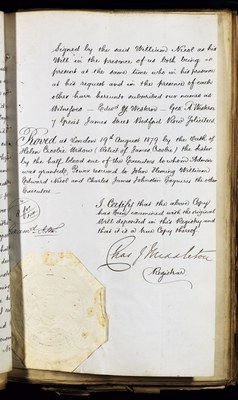 Signed by the said William Nicol as his
Will in the presence of us both being
present at the same time who in his presence
at his request and in the presence of each
other have hereunto subscribed our names as
Witnesses – Edwd Y Western – Geo. A Western
7 Great James Street Bedford Row Solicitors
Proved at London 19th August 1879 by the Oath of
Helen Crosbie Widow (Relict of James Crosbie) the Sister
by the half blood one of the Executors to whom Admon
was granted, Power reserved to John Fleming William
Edward Nicol and Charles James Johnston Esquires the other
Executors
I Certify that the above Copy
has been examined with the original
Will deposited in this Registry and
that it is a true Copy thereof.
Chas J Middleton
Registrar